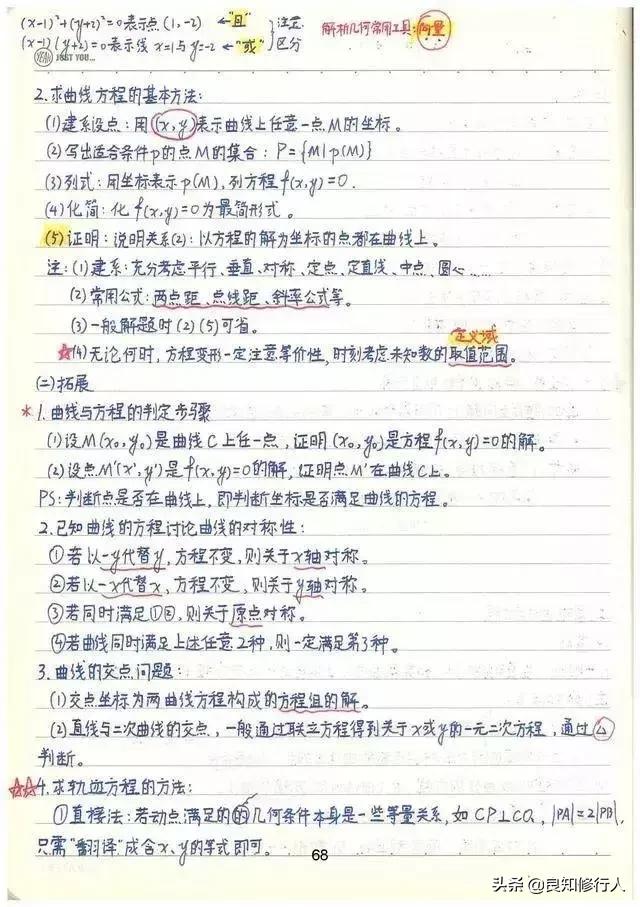 (x-1)²+(y+2)²=0表示点(1,-2) ←"且" 注意
解析几何常用工具:向量
(x-1)(y+2)=0表示线x=1与y=-2 ←"或" 区分
YEAH JUST YOU...
2.求曲线方程的基本方法:
(1)建系设点:用(x,y)表示曲线上任意一点M的坐标。
(2)写出适合条件p的点M的集合:P={M|p(M)}
(3)列式:用坐标表示p(M),列方程f(x,y)=0.
(4)化简:化f(x,y)=0为最简形式。
(5)证明:说明关系(2):以方程的解为坐标的点都在曲线上。
注:(1)建系:充分考虑平行、垂直、对称、定点、定直线、中点、圆心……
(2)常用公式:两点距、点线距、斜率公式等。
(3)一般解题时(2)(5)可省。
定义域
☆(4)无论何时,方程变形一定注意等价性,时刻考虑未知数的取值范围。
(二)拓展
*1.曲线与方程的判定步骤
(1)设M(x₀,y₀)是曲线C上任一点,证明(x₀,y₀)是方程f(x,y)=0的解。
(2)设点M'(x',y')是f(x,y)=0的解,证明点M'在曲线C上。
PS:判断点是否在曲线上,即判断坐标是否满足曲线的方程。
2.已知曲线的方程讨论曲线的对称性:
①若以-y代替y,方程不变,则关于x轴对称。
②若以-x代替x,方程不变,则关于y轴对称。
③若同时满足①②,则关于原点对称。
④若曲线同时满足上述任意2种,则一定满足第3种。
3.曲线的交点问题:
(1)交点坐标为两曲线方程构成的方程组的解。
(2)直线与二次曲线的交点,一般通过联立方程得到关于x或y的一元二次方程,通过△
判断。
☆☆4.求轨迹方程的方法:
①直接法:若动点满足的的几何条件本身是一些等量关系,如CP⊥CQ,|PA|=2|PB|,
只需"翻译"成含x、y的等式即可。
68
头条@良知修行人